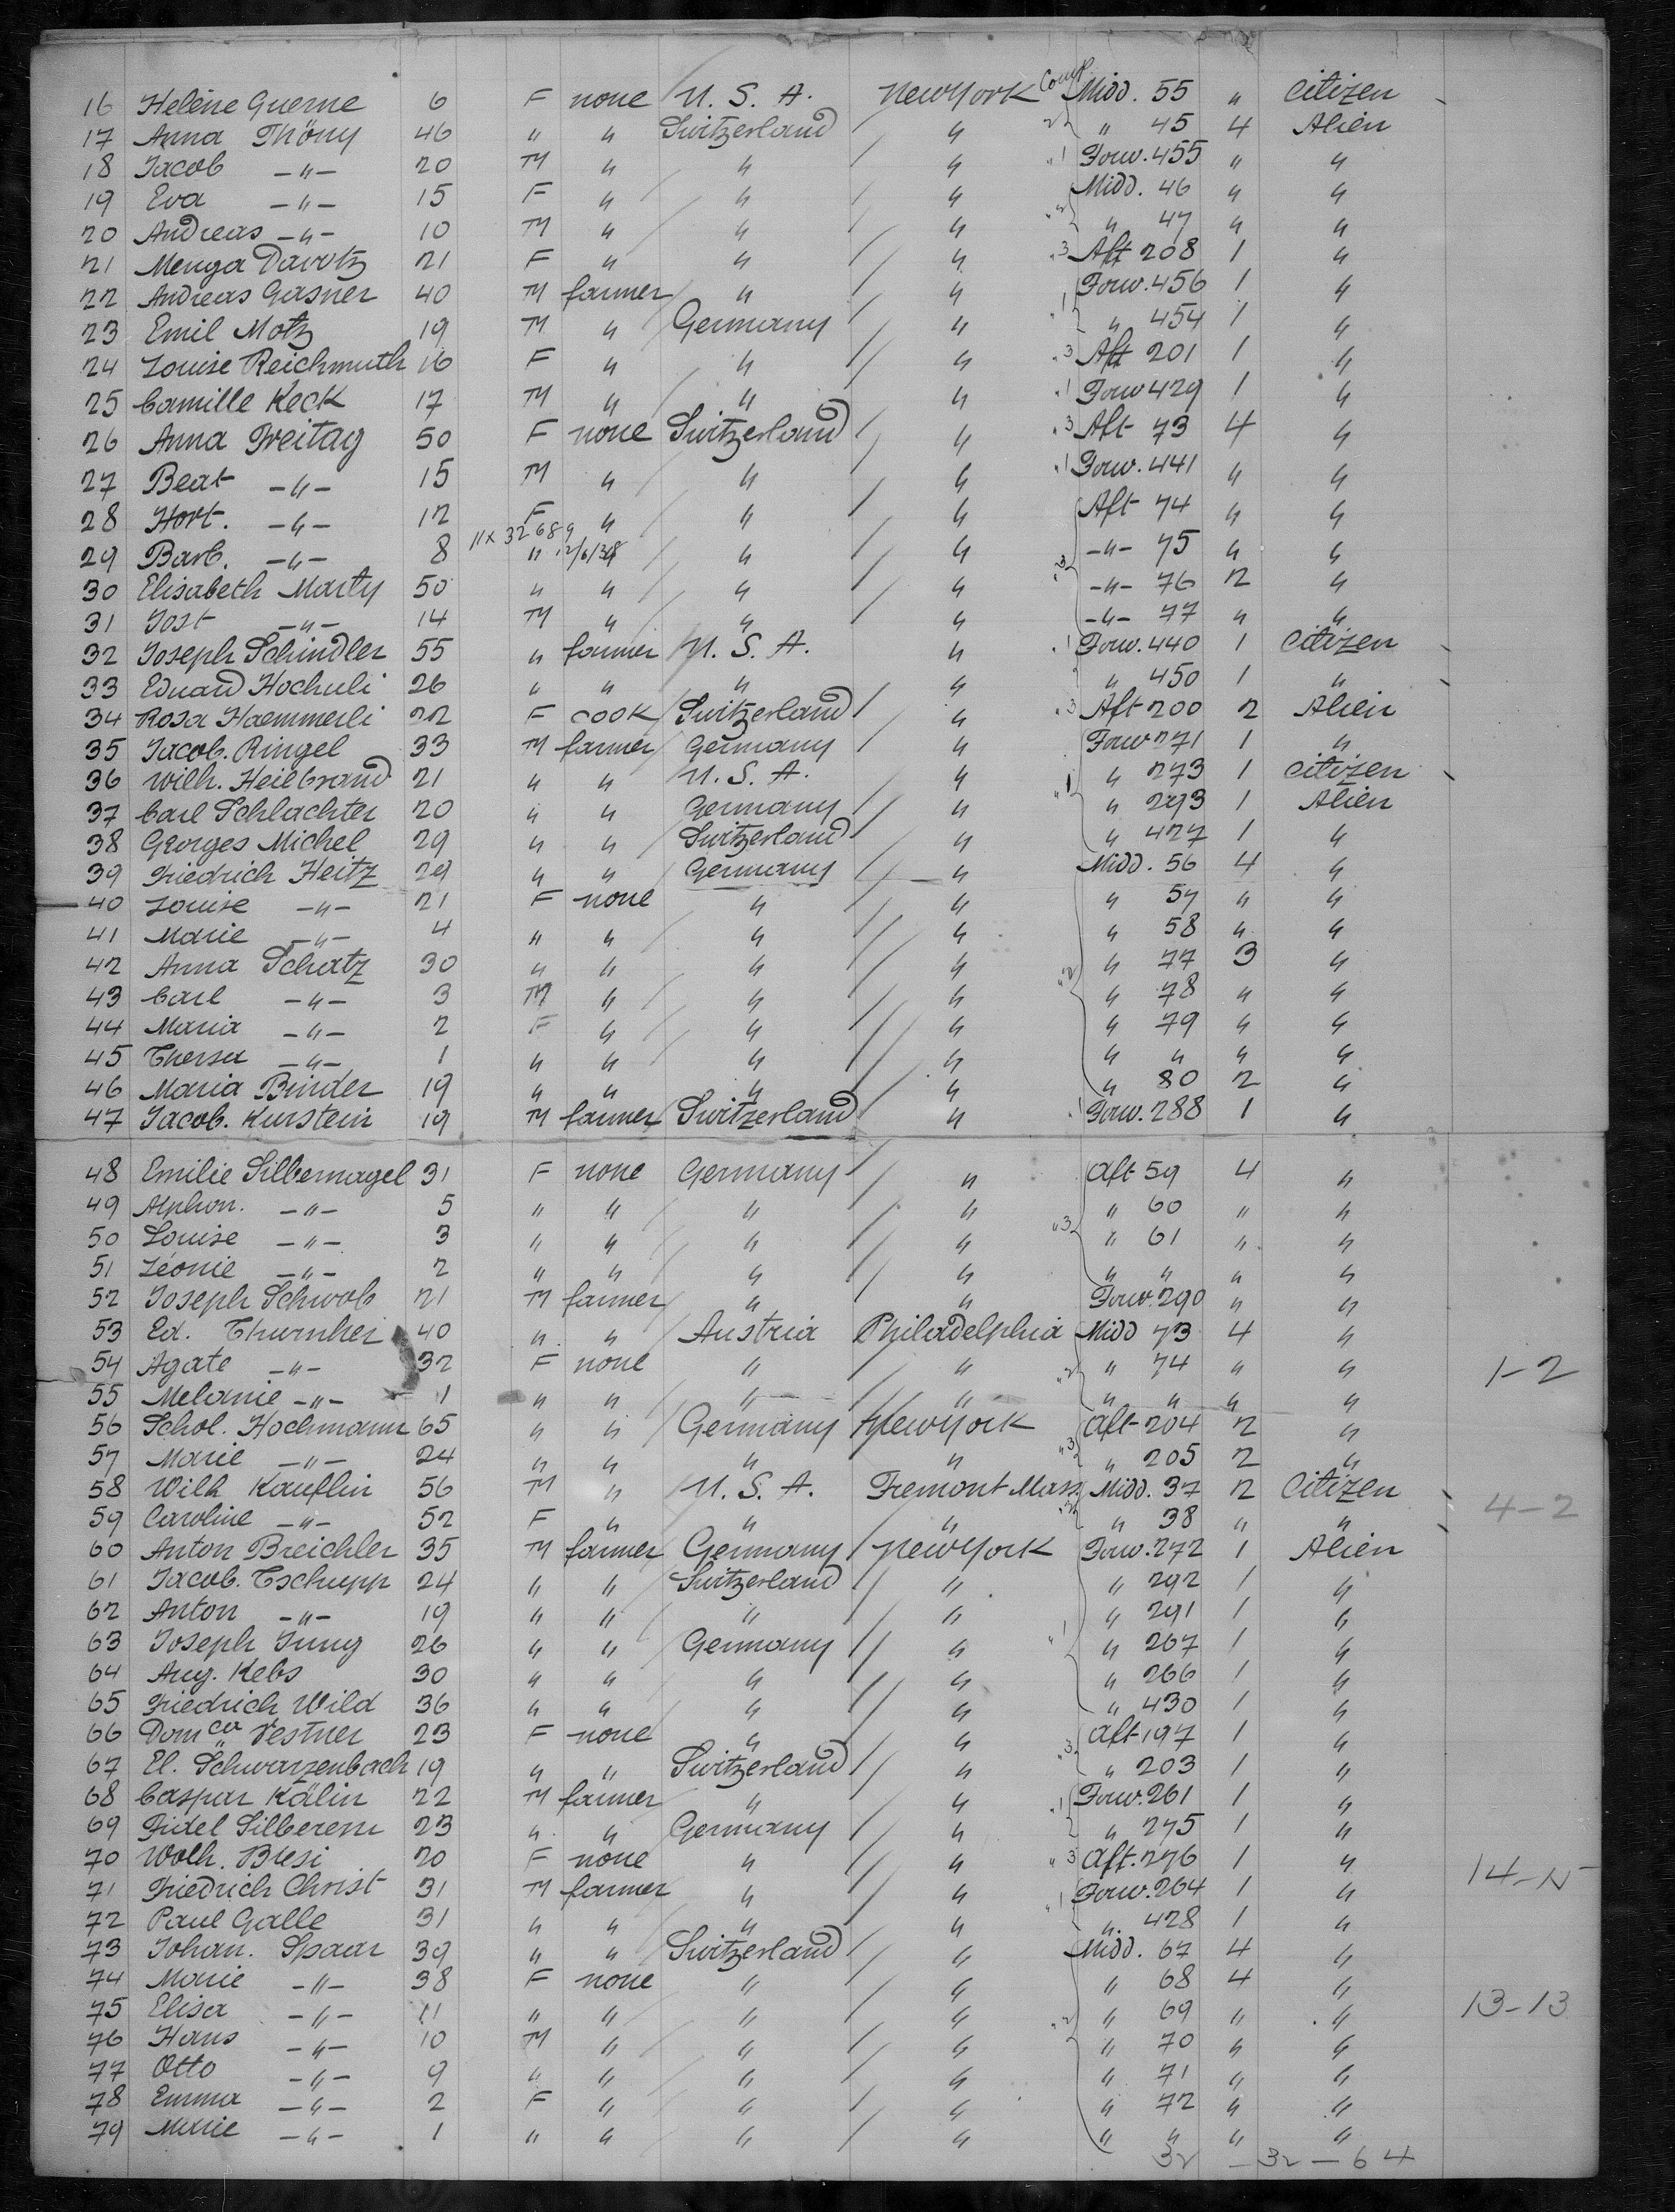 16 Helène Guerne 6 F none U. S. A. New York Comp. Midd. 55 " Citizen
17 Anna Thöny 46 " " Switzerland " "2 " 45 4 Alien
18 Jacob -"- 20 M " " " "1 Forw. 455 " "
19 Eva -"- 15 F " " " "2 Midd. 46 " "
20 Andreas -"- 10 M " " " " 47 " "
21 Menga Davotz 21 F " " " "3 Aft 208 1 "
22 Andreas Gasner 40 M farmer " " "1 Forw. 456 1 "
23 Emil Motz 19 M " Germany " " 454 1 "
24 Louise Reichmuth 16 F " " " "3 Aft 201 1 "
25 Camille Keck 17 M " " " "1 Forw 429 1 "
26 Anna Freitag 50 F none Switzerland " "3 Aft 73 4 "
27 Beat -"- 15 M " " " "1 Forw. 441 " "
28 Hort. -"- 12 F " " " Aft 74 " "
11x 32689
29 Barb. -"- 8 " 12/6/38 " " " "3 -"- 75 " "
30 Elisabeth Marty 50 " " " " -"- 76 2 "
31 Jost -"- 14 M " " " -"- 77 " "
32 Joseph Schindler 55 " farmer U. S. A. " "1 Forw. 440 1 Citizen
33 Eduard Hochuli 26 " " " " " 450 1 "
34 Rosa Haemmerli 22 F cook Switzerland " "3 Aft 200 2 Alien
35 Jacob. Ringel 33 M farmer Germany " Forw 271 1 "
36 Wilh. Heilbrand 21 " " U. S. A. " "1 " 273 1 Citizen
37 Carl Schlachter 20 " " Germany " " 293 1 Alien
38 Georges Michel 29 " " Switzerland " " 427 1 "
39 Friedrich Heitz 29 " " Germany " Midd. 56 4 "
40 Louise -"- 21 F none " " " 57 " "
41 Marie -"- 4 " " " " " 58 " "
42 Anna Schatz 30 " " " " "2 " 77 3 "
43 Carl -"- 3 M " " " " 78 " "
44 Maria -"- 2 F " " " " 79 " "
45 Thersa -"- 1 " " " " " " " "
46 Maria Binder 19 " " " " " 80 2 "
47 Jacob. Kurstein 19 M farmer Switzerland " "1 Forw. 288 1 "
48 Emilie Silbernagel 31 F none Germany " Aft 59 4 "
49 Alphon. -"- 5 " " " " " 60 " "
50 Louise -"- 3 " " " " "3 " 61 " "
51 Léonie -"- 2 " " " " " " " "
52 Joseph Schwob 21 M farmer " " Forw. 290 " "
53 Ed. Thurnher 40 " " Austria Philadelphia Midd 73 4 "
54 Agate -"- 32 F none " " "2 " 74 " " 1-2
55 Melanie -"- 1 " " " " " " " "
56 Schol. Hochmann 65 " " Germany New York Aft 204 2 "
57 Marie -"- 24 " " " " "3 " 205 2 "
58 Wilh Kauflin 56 M " U. S. A. Fremont Mass Midd. 37 2 Citizen
59 Caroline -"- 52 F " " " "2 " 38 " " 4-2
60 Anton Breichler 35 M farmer Germany New York Forw. 272 1 Alien
61 Jacob. Tschupp 24 " " Switzerland " " 292 1 "
62 Anton -"- 19 " " " " " 291 1 "
63 Joseph Jung 26 " " Germany " "1 " 267 1 "
64 Aug. Kebs 30 " " " " " 266 1 "
65 Friedrich Wild 36 " " " " " 430 1 "
66 Domca Vestner 23 F none " " Aft 197 1 "
67 El. Schwarzenbach 19 " " Switzerland " "3 " 203 1 "
68 Caspar Kälin 22 M farmer " " "1 Forw. 261 1 "
69 Fidel Silberern 23 " " Germany " " 275 1 "
70 Wolh. Blesi 20 F none " " "3 Aft. 276 1 "
71 Friedrich Christ 31 M farmer " " "1 Forw. 264 1 "
72 Paul Galle 31 " " " " " 428 1 "
73 Johan. Spaar 39 " " Switzerland " Midd. 67 4 "
74 Marie -"- 38 F none " " " 68 4 "
75 Elisa -"- 11 " " " " "2 " 69 " " 13-13
76 Hans -"- 10 M " " " " 70 " "
77 Otto -"- 9 " " " " " 71 " "
78 Emma -"- 2 F " " " " 72 " "
79 Marie -"- 1 " " " " " " " "
32 - 32 - 64